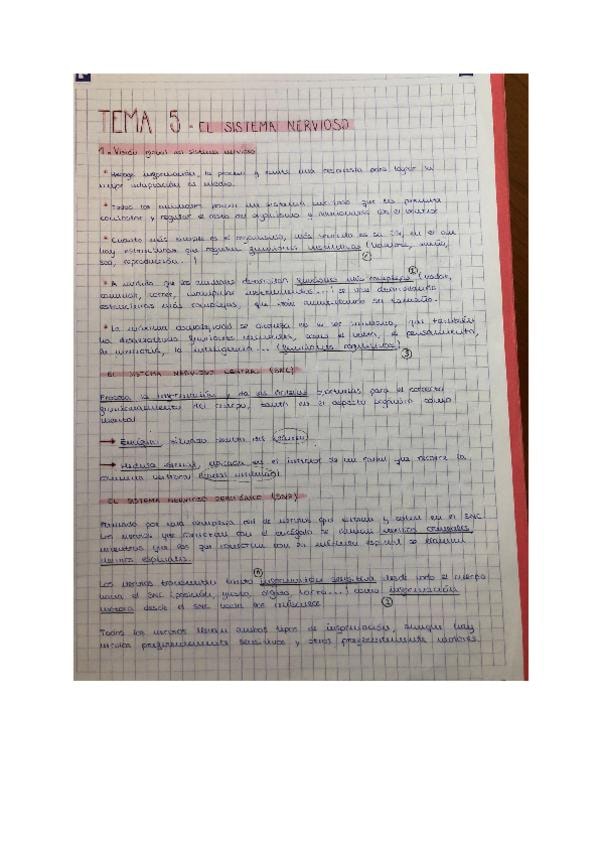 TEMA 5 - EL SISTEMA NERVIOSO
1 - Visión global del sistema nervioso
* Recoge información, la procesa y emite una respuesta para lograr la
mejor adaptación al medio.
* Todos los animales tienen un sistema nervioso que les permite
controlar y regular el
* Cuanto más simple es el organismo, más sencillo es su SN, en el que
hay estructuras que regulan funciones (hambre, sueño,
sed, reproducción...)
①
* A medida que los animales desarrollan funciones más complejas (nadar,
caminar, correr, manipular ...) se van desarrollando
estructuras más complejas, que van aumentando su tamaño.
②
* La máxima complejidad se alcanza en el ser humano, que también
ha desarrollado funciones como el habla, el pensamiento,
la memoria, la inteligencia... (funciones cognitivas)
③
EL SISTEMA NERVIOSO CENTRAL (SNC)
Procesa la información y da las órdenes oportunas para el correcto
funcionamiento del cuerpo, tanto en el aspecto cognitivo como
mental
→ Encéfalo, situado dentro del cráneo.
→ Médula espinal, ubicada en el interior de un canal que recorre la
columna vertebral
EL SISTEMA NERVIOSO PERIFÉRICO (SNP)
Formado por una compleja red de nervios que entran y salen en el SNC
Los nervios que conectan con el encéfalo se llaman nervios craneales,
mientras que los que conectan con la médula espinal se llaman
nervios espinales.
①
Los nervios transmiten tanto información sensitiva desde todo el cuerpo
hacia el SNC (posición, gusto, olfato, ...) como información
motora desde el SNC hacia los músculos
②
Todos los nervios llevan ambos tipos de información, aunque hay
nervios preferentemente sensitivos y otros preferentemente motores.